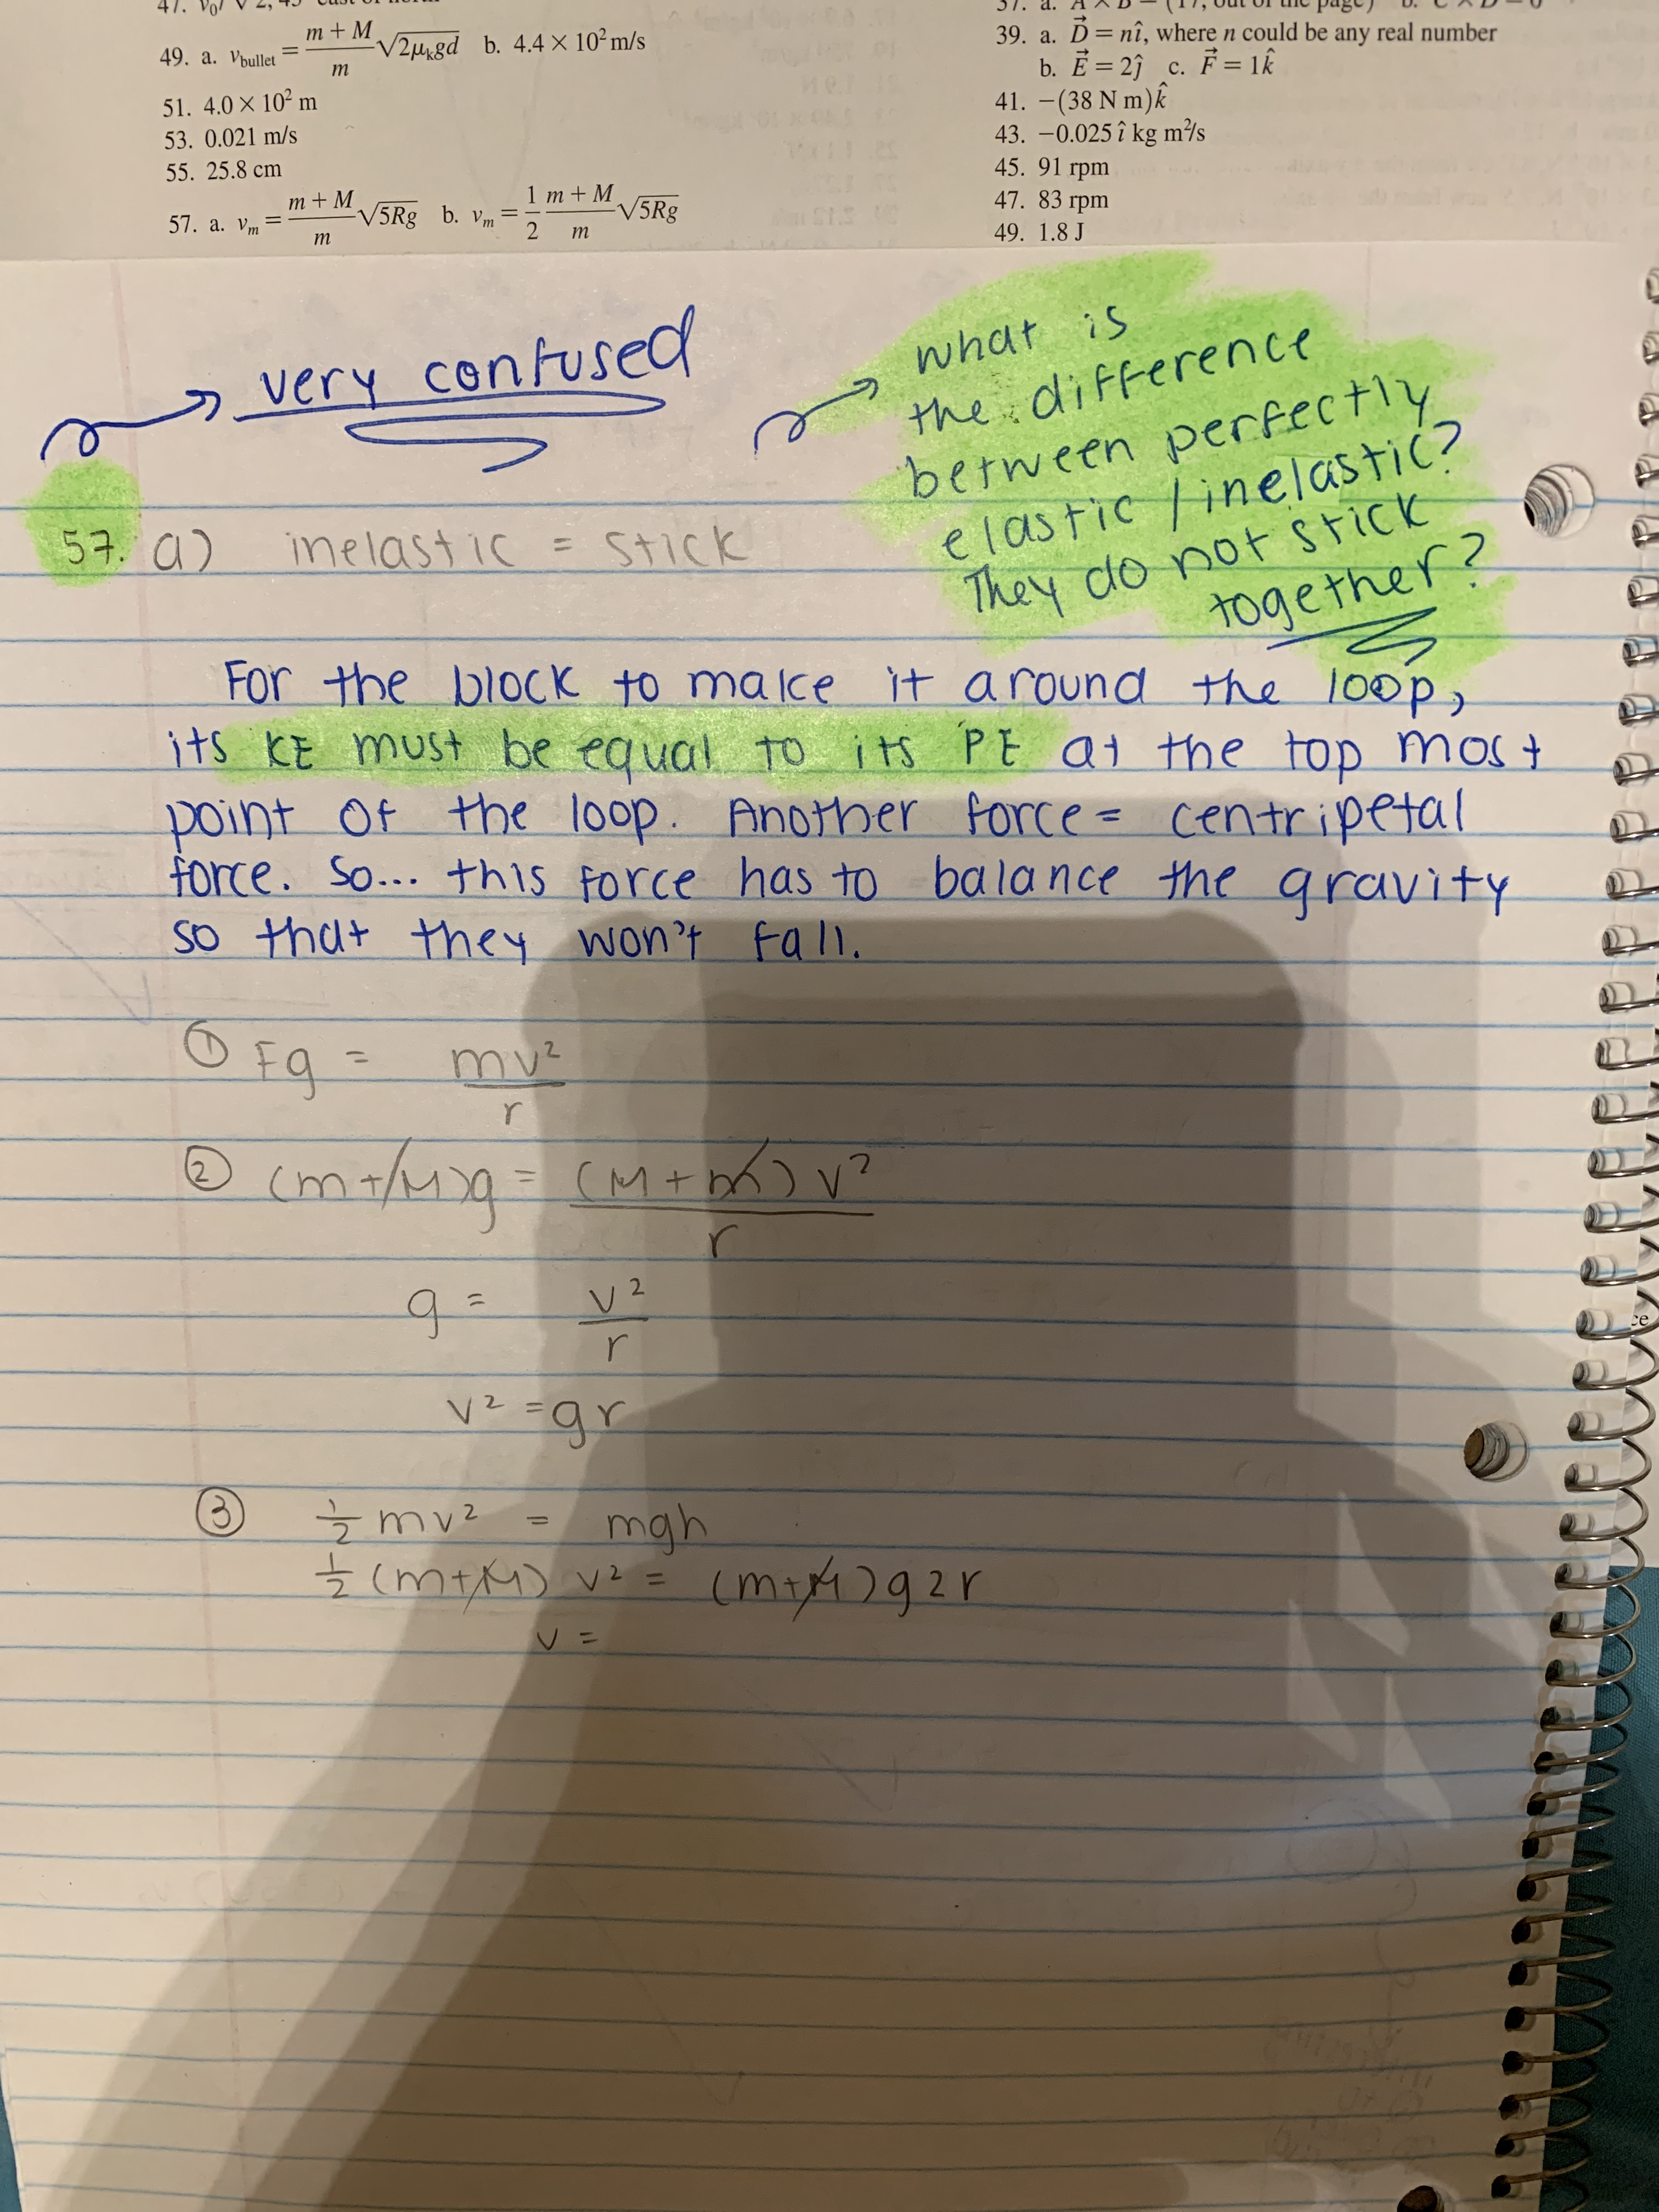 49. a. v_bullet = (m + M)/m √2μₖgd b. 4.4 × 10² m/s
51. 4.0 × 10² m
53. 0.021 m/s
55. 25.8 cm
57. a. vₘ = (m + M)/m √5Rg b. vₘ = 1/2 (m + M)/m √5Rg
39. a. D⃗ = nî, where n could be any real number
b. E⃗ = 2ĵ c. F⃗ = 1k̂
41. −(38 N m)k̂
43. −0.025 î kg m²/s
45. 91 rpm
47. 83 rpm
49. 1.8 J
very confused
what is
the difference
between perfectly
elastic / inelastic?
They do not stick
together?
57. a) inelastic = stick
For the block to make it around the loop,
its KE must be equal to its PE at the top most
point of the loop. Another force = centripetal
force. So... this force has to balance the gravity
so that they won't fall.
① Fg = mv²/r
② (m+M)g = (M+m)v²/r
g = v²/r
v² = gr
③ ½ mv² = mgh
½ (m+M) v² = (m+M)g2r
v =